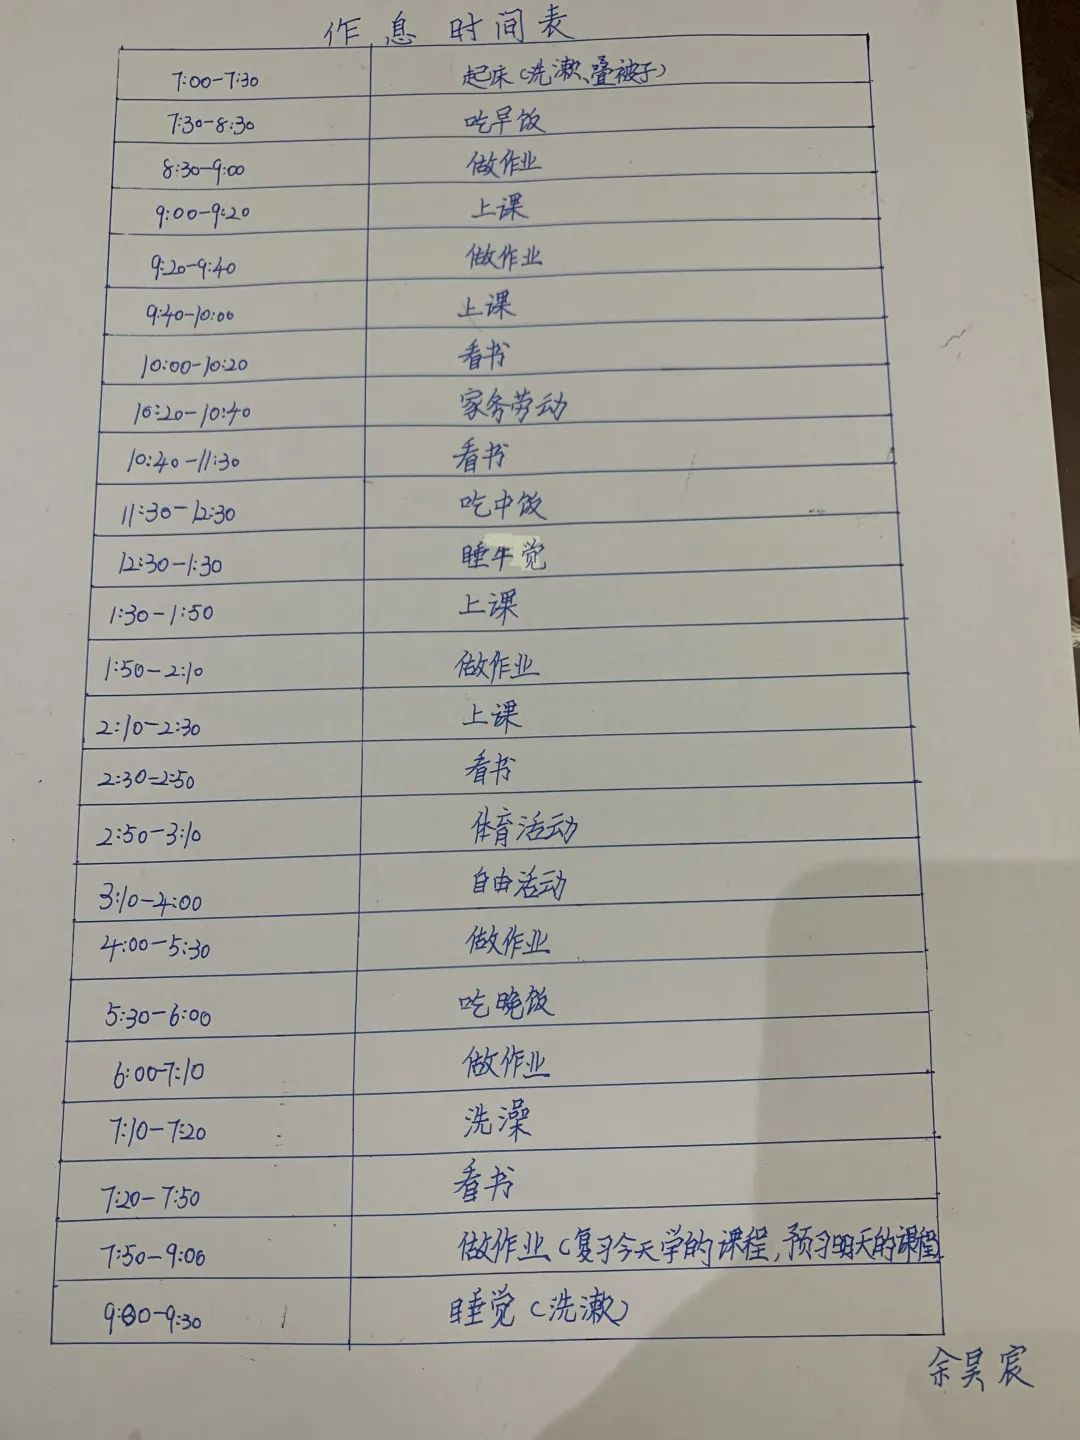 作息时间表
7:00-7:30 起床(洗漱、叠被子)
7:30-8:30 吃早饭
8:30-9:00 做作业
9:00-9:20 上课
9:20-9:40 做作业
9:40-10:00 上课
10:00-10:20 看书
10:20-10:40 家务劳动
10:40-11:30 看书
11:30-12:30 吃中饭
12:30-1:30 睡午觉
1:30-1:50 上课
1:50-2:10 做作业
2:10-2:30 上课
2:30-2:50 看书
2:50-3:10 体育活动
3:10-4:00 自由活动
4:00-5:30 做作业
5:30-6:00 吃晚饭
6:00-7:10 做作业
7:10-7:20 洗澡
7:20-7:50 看书
7:50-9:00 做作业(复习今天学的课程,预习明天的课程)
9:00-9:30 睡觉(洗漱)
余昊宸